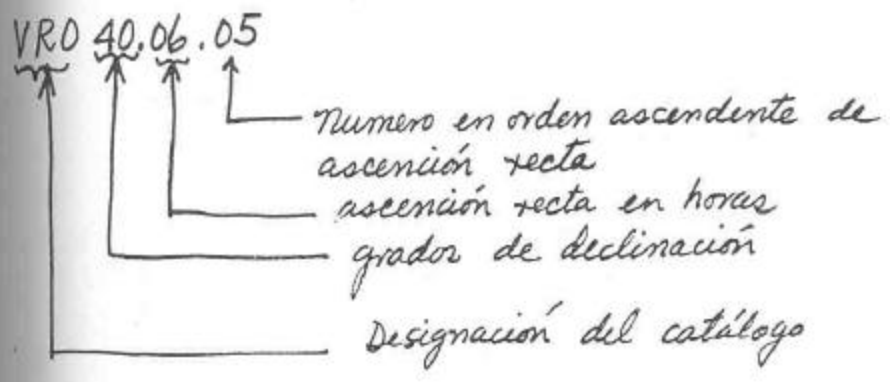 VRO 40.06.05
Numero en orden ascendente de
ascención recta
ascención recta en horas
grados de declinación
Designación del catálogo